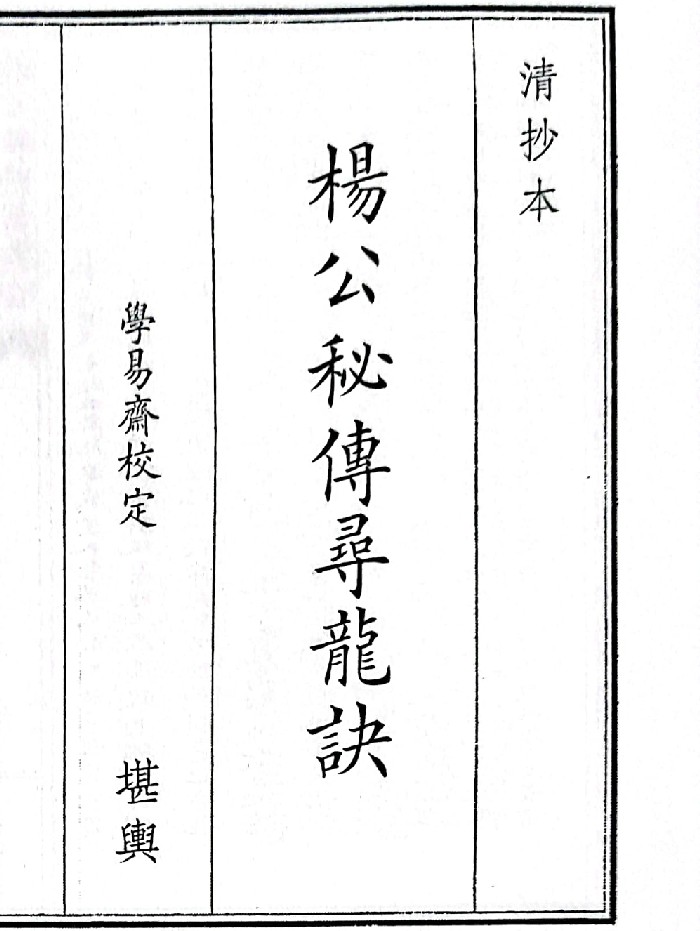 清抄本
楊公秘傳尋龍訣
學易齋校定
堪輿